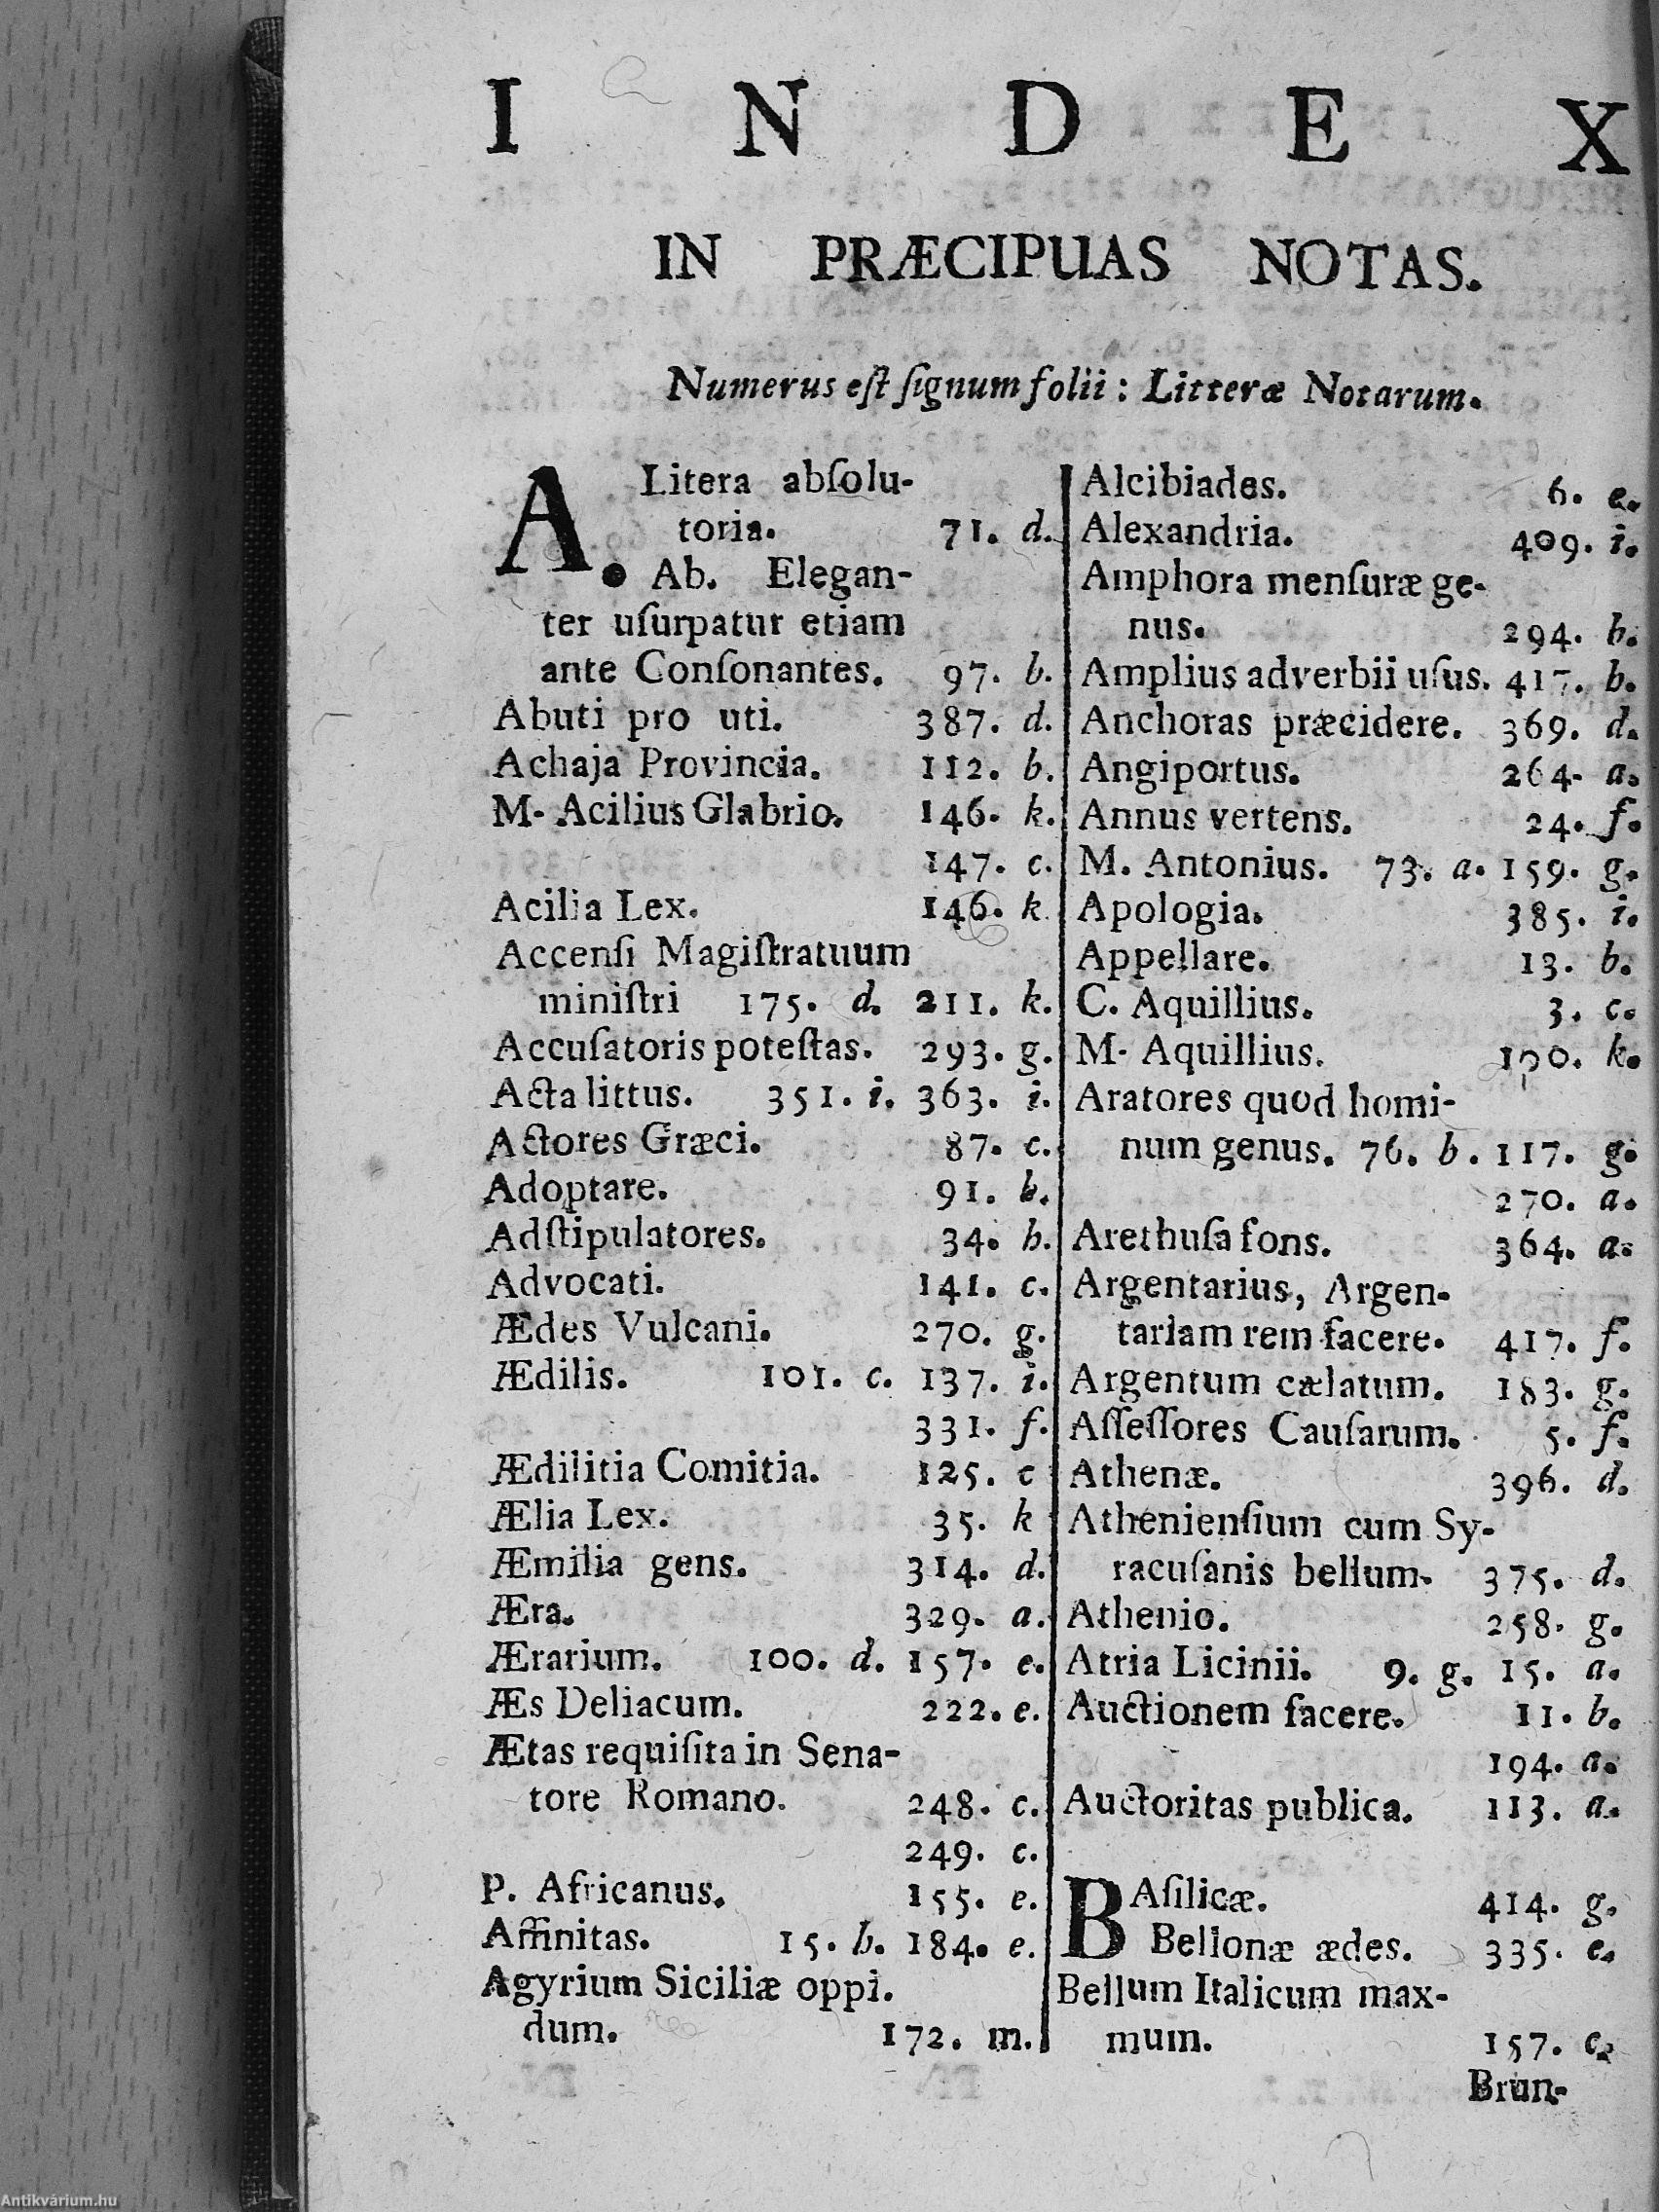 I N D E X
IN PRÆCIPUAS NOTAS.
Numerus eſt ſignum folii: Litteræ Notarum.
A. Litera abſolu-
toria. 71. d.
Ab. Elegan-
ter uſurpatur etiam
ante Conſonantes. 97. b.
Abuti pro uti. 387. d.
Achaja Provincia. 112. b.
M. Acilius Glabrio. 146. k.
147. c.
Acilia Lex. 146. k.
Accenſi Magiſtratuum
miniſtri 175. d. 211. k.
Accuſatoris poteſtas. 293. g.
Acta littus. 351. i. 363. i.
Actores Græci. 87. c.
Adoptare. 91. b.
Adſtipulatores. 34. b.
Advocati. 141. c.
Ædes Vulcani. 270. g.
Ædilis. 101. c. 137. i.
331. f.
Ædilitia Comitia. 125. c
Ælia Lex. 35. k
Æmilia gens. 314. d.
Æra. 329. a.
Ærarium. 100. d. 157. e.
Æs Deliacum. 222. e.
Ætas requiſita in Sena-
tore Romano. 248. c.
249. c.
P. Africanus. 155. e.
Affinitas. 15. b. 184. e.
Agyrium Siciliæ oppi.
dum. 172. m.
Alcibiades. 6. e.
Alexandria. 409. i.
Amphora menſuræ ge-
nus. 294. b.
Amplius adverbii uſus. 417. b.
Anchoras præcidere. 369. d.
Angiportus. 264. a.
Annus vertens. 24. f.
M. Antonius. 73. a. 159. g.
Apologia. 385. i.
Appellare. 13. b.
C. Aquillius. 3. c.
M. Aquillius. k.
Aratores quod homi-
num genus. 76. b. 117. g.
270. a.
Arethuſa fons. 364. a.
Argentarius, Argen-
tariam rem facere. 417. f.
Argentum cælatum. 183. g.
Aſſeſſores Cauſarum. 5. f.
Athenæ. 396. d.
Athenienſium cum Sy-
racuſanis bellum. 375. d.
Athenio. 258. g.
Atria Licinii. 9. g. 15. a.
Auctionem facere. 11. b.
194. a.
Auctoritas publica. 113. a.
BAſilicæ. 414. g.
Bellonæ ædes. 335. e.
Bellum Italicum max-
mum. 157. c.
Brun-
Antikvárium.hu